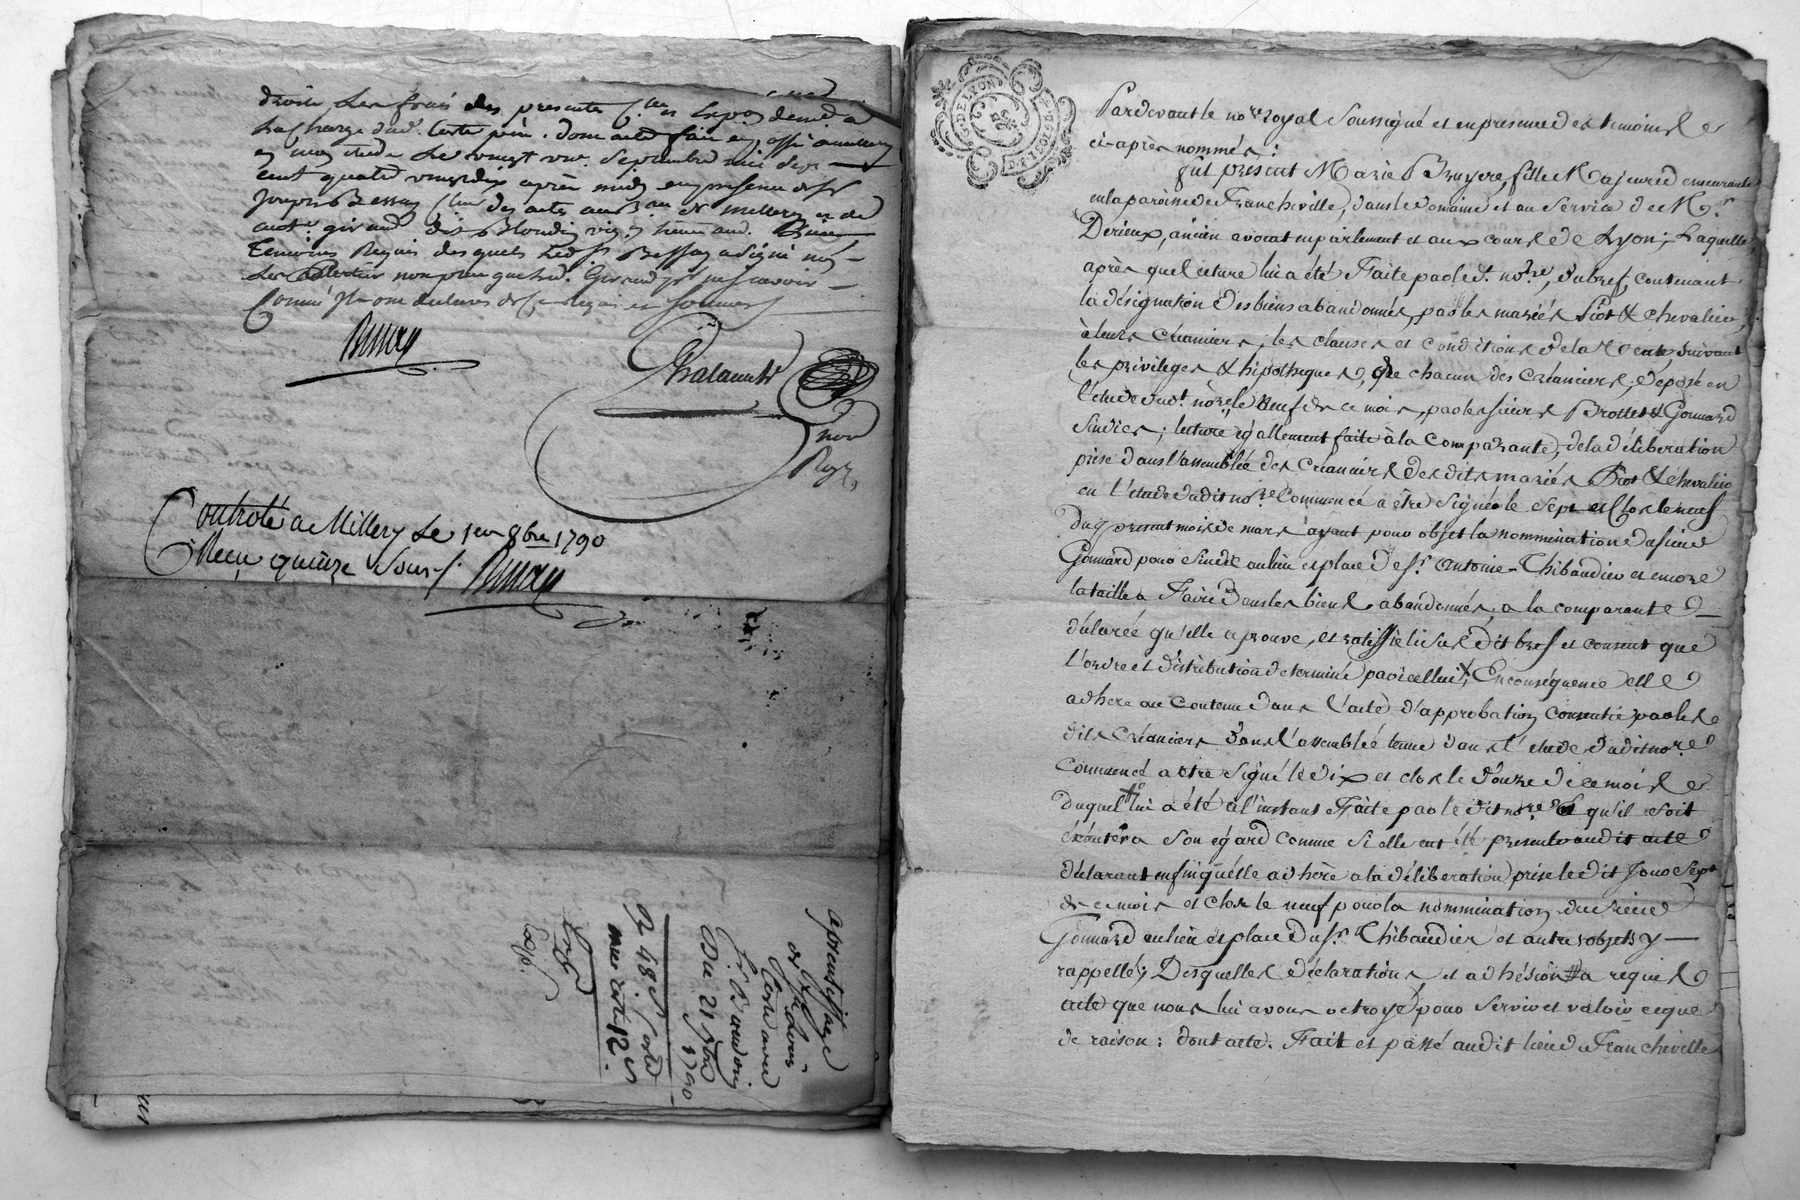 droits Les frais des presente
la charge dud. Coste père. dont acte fait et passé a millery
en mon etude Le vingt un Septembre mil sept
cent quatre vingt dix après midy en presence de Sr
joseph Bessay des actes au Bau de Millery et de
ant. giraud dit Blondin vig.
Temoins Requis desquels Led. Sr Bessay a Signé
non plus que led. Giraud pr ne Scavoir
Comme Ils ont declaré de ce requis et Sommés
nore
Roy.
Controlé a Millery Le 1er 8bre 1790
Reçu quinze Sous
aprentissage
de
Coste avec
Du 21 7bre 1790
G. DE LYON
Pardevant le nore royal Soussigné et en presence des temoins
ci-après nommés :
fut présent Marie Bruyere, fille Majeure demeurante
en la paroisse de Francheville, dans le domaine et au Service de Mr.
Derieux, ancien avocat en parlement et aux cours de Lyon ; Laquelle
après que lecture lui a été Faite par le dt. nore, du bref, contenant
la désignation des biens abandonnés, par les mariés Piot & chevalier,
à leurs Créanciers, les clauses et conditions de la Vente, Suivant
les privileges & hipotheques, de chacun des Créanciers, déposé en
l'etude dudt. nore le Neuf de ce mois, par les sieurs Brottet & Gonnard
Sindics ; lecture egallement faite à la comparante, de la déliberation
prise dans l'assemblée des Créanciers des dits mariés Piot & chevalier
en l'etude dudit nore Commencé a être Signée le Sept et Clos le neuf
du present mois de mars ayant pour objet la nommination du sieur
Gonnard pour Sindic au lieu et place de Sr. Antoine Thibaudier et encore
la taille a Faire dans les biens abandonnés, a la comparante
déclarée qu'elle aprouve, et ratiffie le Sus dit bref et consent que
l'ordre et distribution determiné par icellui, En conséquence elle
adhere au Contenu dans l'acte d'approbation Consentie par les
dits Créanciers dans l'assemblée tenue dans l'etude dudit nore
Commencé a être Signé le dix et clos le douze de ce mois
duquel lui a été à l'instant Faite par le dit nore qu'il soit
éxécuter a Son egard comme Si elle eut été presente audit acte
déclarant enfin qu'elle adhère a la déliberation prise le dit jour Sept
de ce mois et clos le neuf pour la nommination du Sieur
Gonnard au lieu et place du Sr. Thibaudier et autres objets y
rappellés ; Desquelles déclarations et adhésion a requis
acte que nous lui avons octroyé pour Servir et valoir ce que
de raison : dont acte. Fait et passé audit lieu de Francheville